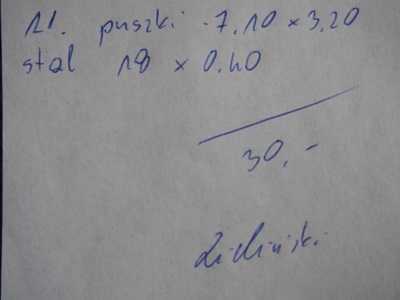 11. puszki - 7,10 x 3,20
stal 18 x 0,40
30,-
Zieliński